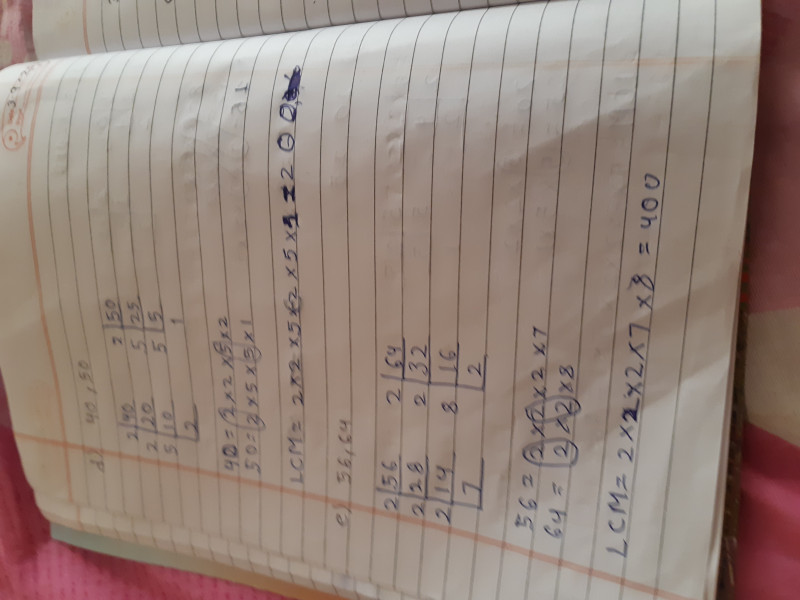 d) 40, 50
2|40 2|50
2|20 5|25
5|10 5|5
2 1
40 = 2 × 2 × 5 × 2
50 = 2 × 5 × 5 × 1
LCM = 2 × 2 × 5 × 2 × 5 × 1 = 200
e) 56, 64
2|56 2|64
2|28 2|32
2|14 8|16
7 2
56 = 2 × 2 × 2 × 7
64 = 2 × 2 × 8
LCM = 2 × 2 × 2 × 7 × 8 = 400